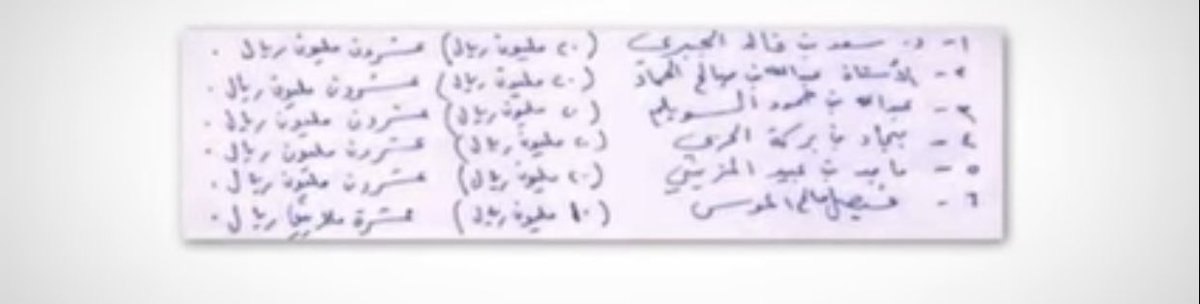 ١- د. سعد بن خالد الجبري (٢٠ مليون ريال) عشرون مليون ريال .
٢- الأستاذ عبدالله بن صالح الحماد (٢٠ مليون ريال) عشرون مليون ريال .
٣- عبدالله بن حمود السويلم (٢٠ مليون ريال) عشرون مليون ريال .
٤- بجاد بن بركة الحربي (٢٠ مليون ريال) عشرون مليون ريال .
٥- ماجد بن عبيد المزيني (٢٠ مليون ريال) عشرون مليون ريال .
٦- فيصل صالح الموسى (١٠ مليون ريال) عشرة ملايين ريال .